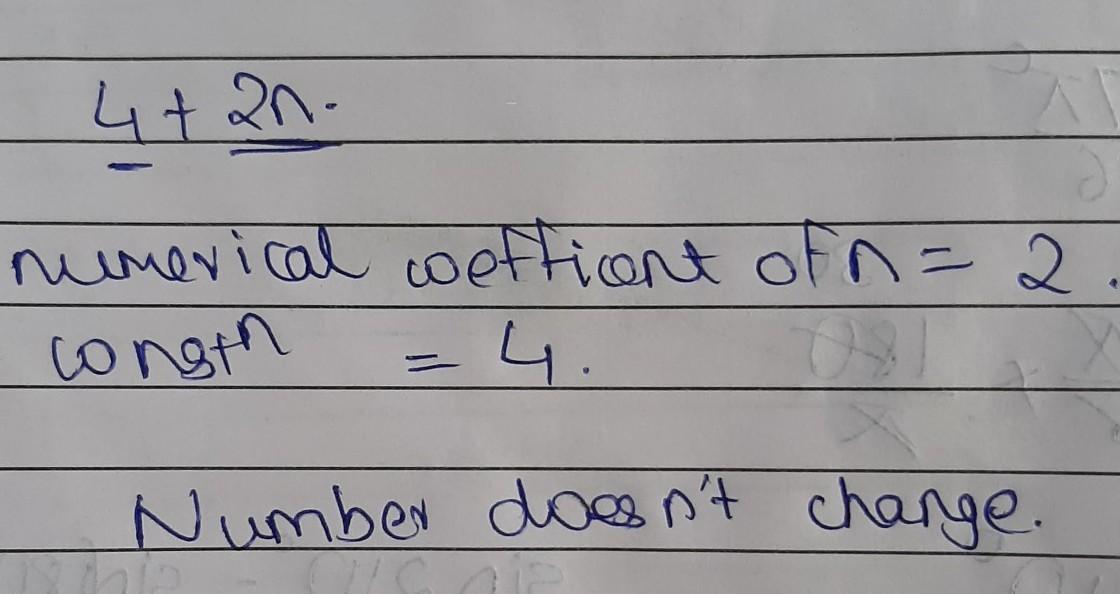 4 + 2n.
numerical coefficient of n = 2.
constn = 4.
Number doesn't change.